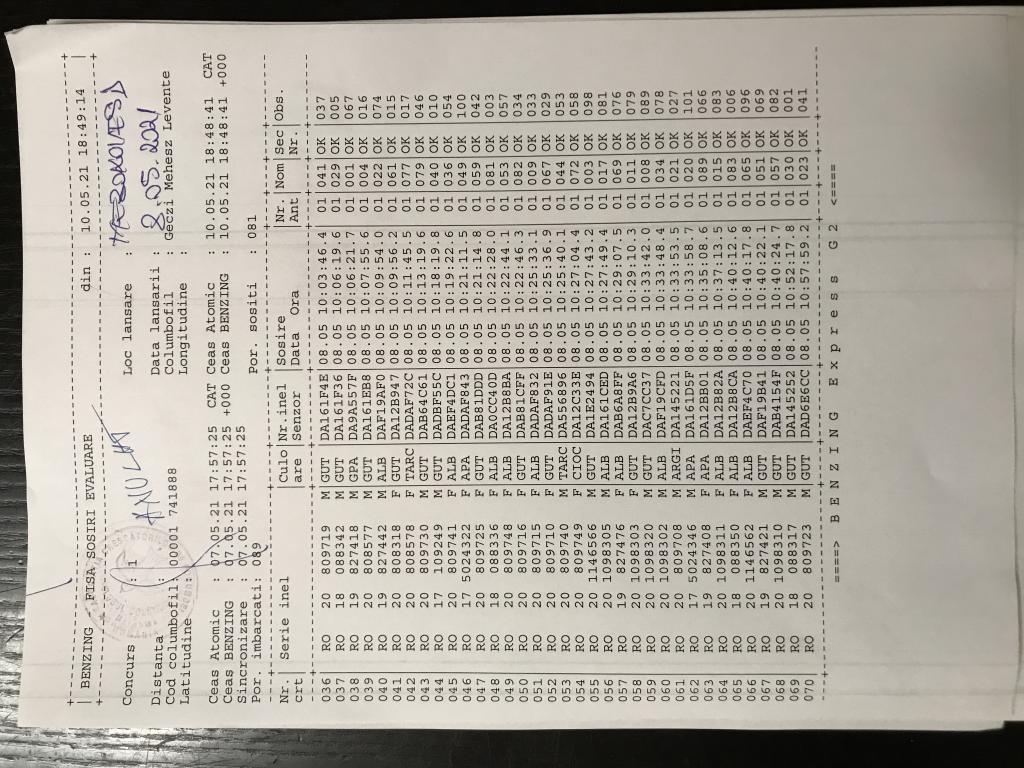 BENZING FISA SOSIRI EVALUARE din : 10.05.21 18:49:14
Concurs : 1 ANULAT Loc lansare :
Distanta : Data lansarii : 8.05.2021
Cod columbofil: 00001 741888 Columbofil : Geczi Mehesz Levente
Latitudine : Longitudine :
Ceas Atomic : 07.05.21 17:57:25 CAT Ceas Atomic : 10.05.21 18:48:41 CAT
Ceas BENZING : 07.05.21 17:57:25 +000 Ceas BENZING : 10.05.21 18:48:41 +000
Sincronizare : 07.05.21 17:57:25
Por. imbarcati: 089 Por. sositi : 081
Nr. | Serie inel |Culo|Nr.inel |Sosire |Nr. |Nom|Sec|Obs.
crt | |are |Senzor |Data Ora |Ant | |Nr.|
036 RO 20 809719 M GUT DA161F4E 08.05 10:03:46.4 01 041 OK 037
037 RO 18 088342 M GUT DA161F36 08.05 10:06:19.6 01 021 OK 005
038 RO 19 827418 M GPA DA9A557F 08.05 10:06:21.7 01 001 OK 067
039 RO 20 808577 M GUT DA161EB8 08.05 10:07:55.6 01 004 OK 016
040 RO 19 827442 M ALB DAF19AF0 08.05 10:09:54.0 01 022 OK 074
041 RO 20 808318 F GUT DA12B947 08.05 10:09:56.2 01 061 OK 015
042 RO 20 808578 F TARC DADAF72C 08.05 10:11:45.5 01 077 OK 017
043 RO 20 809730 M GUT DAB64C61 08.05 10:13:19.6 01 079 OK 046
044 RO 17 1109249 M GUT DADBF55C 08.05 10:18:19.8 01 046 OK 010
045 RO 20 809741 F ALB DAEF4DC1 08.05 10:19:22.6 01 036 OK 054
046 RO 17 5024322 F APA DADAF843 08.05 10:21:11.5 01 049 OK 100
047 RO 20 809725 F GUT DAB81DDD 08.05 10:21:14.8 01 089 OK 042
048 RO 18 088336 F ALB DA0CC40D 08.05 10:22:28.0 01 081 OK 003
049 RO 20 809748 F ALB DA12B8BA 08.05 10:22:44.1 01 053 OK 057
050 RO 20 809716 F GUT DAB81CFF 08.05 10:22:46.3 01 082 OK 034
051 RO 20 809715 F ALB DADAF832 08.05 10:25:33.1 01 009 OK 033
052 RO 20 809710 F GUT DADAF91E 08.05 10:25:36.9 01 067 OK 029
053 RO 20 809740 M TARC DA556896 08.05 10:25:40.1 01 044 OK 053
054 RO 20 809749 F CIOC DA12C33E 08.05 10:27:04.4 01 072 OK 058
055 RO 20 1146566 M GUT DA1E2494 08.05 10:27:43.2 01 003 OK 098
056 RO 20 1098305 M ALB DA161CED 08.05 10:27:49.4 01 017 OK 081
057 RO 19 827476 F ALB DAB6A8FF 08.05 10:29:07.5 01 069 OK 076
058 RO 20 1098303 F GUT DA12B9A6 08.05 10:29:10.3 01 011 OK 079
059 RO 20 1098320 M GUT DAC7CC37 08.05 10:33:42.0 01 008 OK 089
060 RO 20 1098302 M ALB DAF19CFD 08.05 10:33:48.4 01 034 OK 078
061 RO 20 809708 M ARGI DA145221 08.05 10:33:53.5 01 021 OK 027
062 RO 17 5024346 M APA DA161D5F 08.05 10:33:58.7 01 020 OK 101
063 RO 19 827408 F APA DA12BB01 08.05 10:35:08.6 01 089 OK 066
064 RO 20 1098311 F ALB DA12B82A 08.05 10:37:13.5 01 015 OK 083
065 RO 18 088350 F ALB DA12B8CA 08.05 10:40:12.6 01 083 OK 006
066 RO 20 1146562 F ALB DAEF4C70 08.05 10:40:17.8 01 065 OK 096
067 RO 19 827421 M GUT DAF19B41 08.05 10:40:22.1 01 051 OK 069
068 RO 20 1098310 M GUT DAB4154F 08.05 10:40:24.7 01 057 OK 082
069 RO 18 088317 M GUT DA145252 08.05 10:52:17.8 01 030 OK 001
070 RO 20 809723 M GUT DAD6E6CC 08.05 10:57:59.2 01 023 OK 041
====> BENZING Express G2 <====